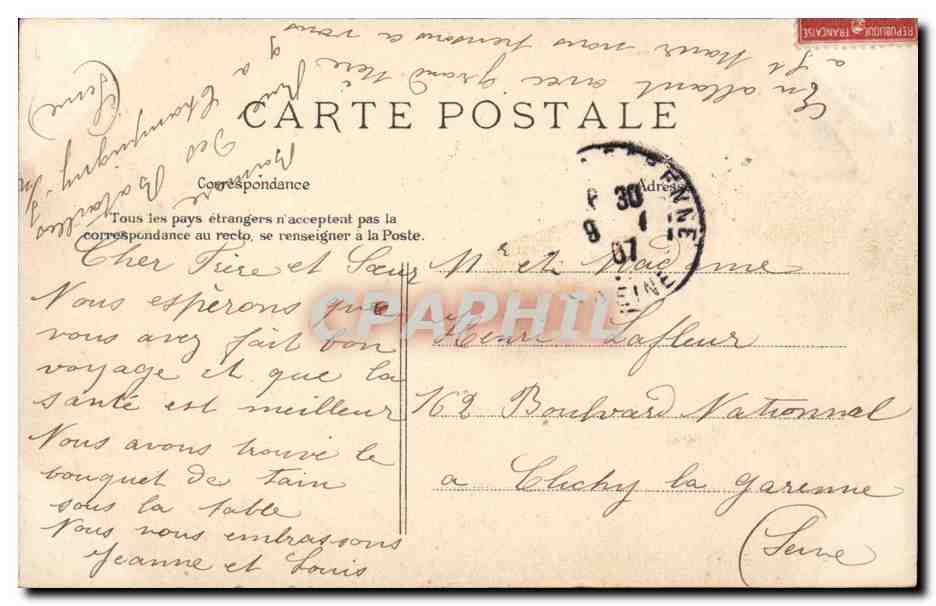 CARTE POSTALE
Correspondance
Adresse
Tous les pays étrangers n'acceptent pas la
correspondance au recto, se renseigner à la Poste.
Cher Frère et Sœur
Nous espèrons que
vous avez fait bon
voyage et que la
santé est meilleur
Nous avons trouve le
bouquet de tain
sous la table
Nous vous embrassons
Jeanne et Louis
Mr et Madame
Henri Lafleur
162 Boulvard Nationnal
a Clichy la Garenne
(Seine
En allant avec grand Mère
a St Maur nous pensons a vous
9 Rue Des Batailles
a Champigny-
(Seine)
REPUBLIQUE FRANÇAISE
30
9 1
07
SEINE
CPAPHIL